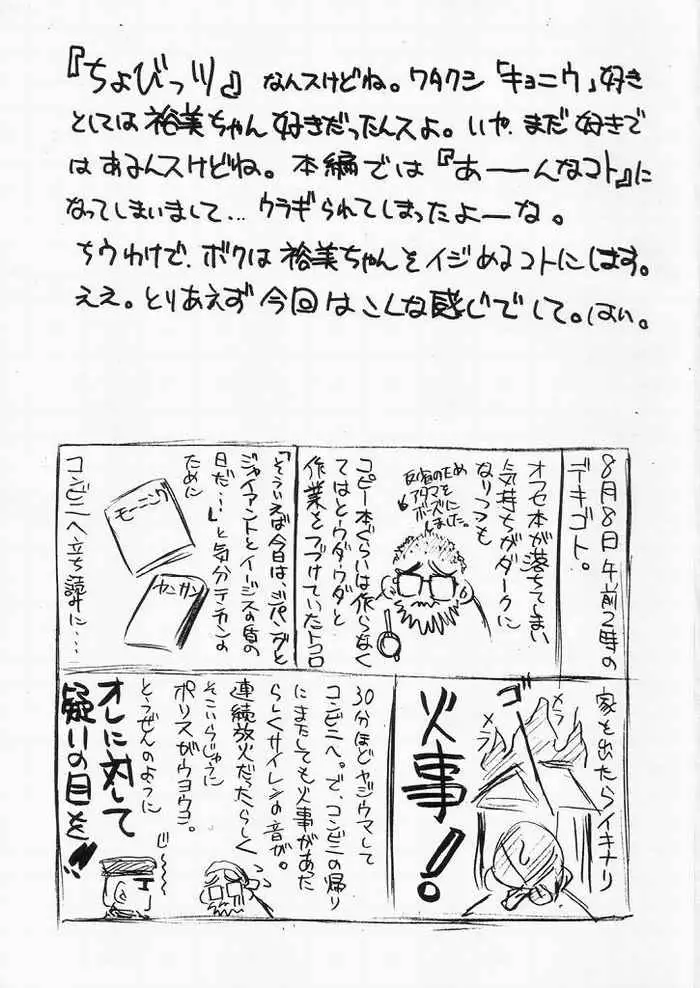 『ちょびっツ』なんスけどね。ワタクシ「キョニウ」好き
としては裕美ちゃん好きだったんスよ。いや、まだ好きで
はあるんスけどね。本編では『あーーんなコト』に
なってしまいまして…ウラギられてしまったよーな。
ちウわけで、ボクは裕美ちゃんをイジめるコトにしはす。
ええ。とりあえず今回はこんな感じでして。はい。
8月8日午前2時の
デキゴト。
オフセ本が落ちてしまい
気持ちがダークに
なりつつも
反省のため
アタマを
ボーズに
しました。
コピー本ぐらいは作らなく
てはとウダウダと
作業をつづけていたトコロ
「そういえば今日は、ジパングと
ジャイアントとイージスの盾の
日だ…」と気分テンカンの
ために
モーニング
ヤンガン
コンビニへ立ち読みに…
家を出たらイキナリ
メラ
メラ
ゴー
火事!
30分ほどヤジウマして
コンビニへ。で、コンビニの帰り
にまたしても火事があった
らしくサイレンの音が。
連続放火だったらしく
そこいらじゅうに
ポリスがウヨウヨ。
とうぜんのように
オレに対して
疑いの目を!!
じー